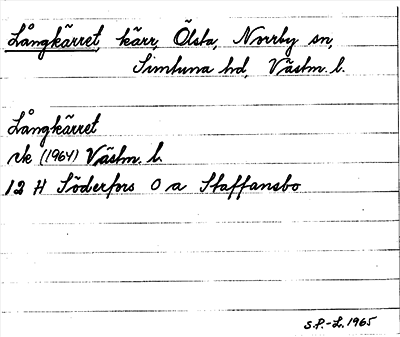 Långkärret, kärr, Ölsta, Norrby sn,
Simtuna hd, Västm. l.
Långkärret
rk (1964) Västm. l.
12 H Söderfors 0 a Staffansbo
S.P.-L. 1965